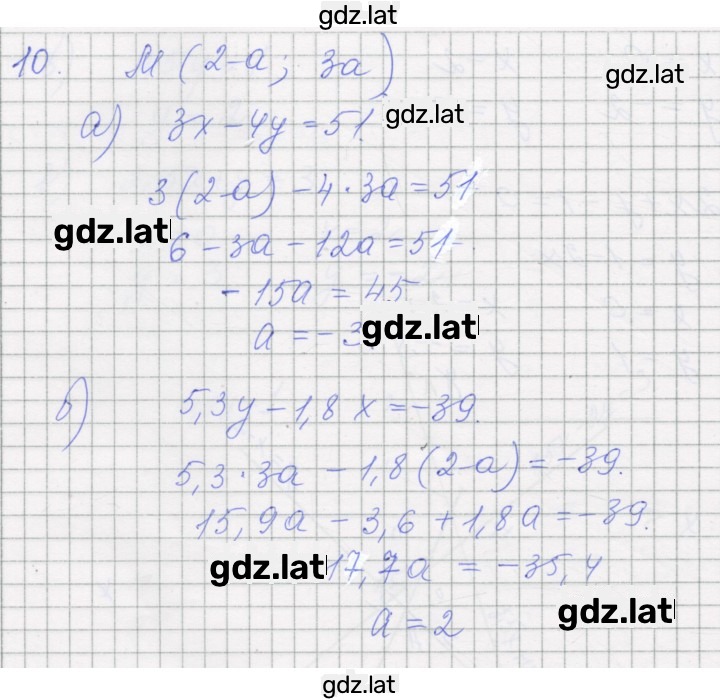 gdz.lat
10. М (2-а; 3а)
gdz.lat
а) 3х - 4у = 51.
gdz.lat
3(2-а) - 4·3а = 51
gdz.lat
6 - 3а - 12а = 51
- 15а = 45
а = - 3
gdz.lat
б) 5,3у - 1,8х = -39.
5,3·3а - 1,8(2-а) = -39.
15,9а - 3,6 + 1,8а = -39.
gdz.lat
17,7а = -35,4
а = 2
gdz.lat
gdz.lat